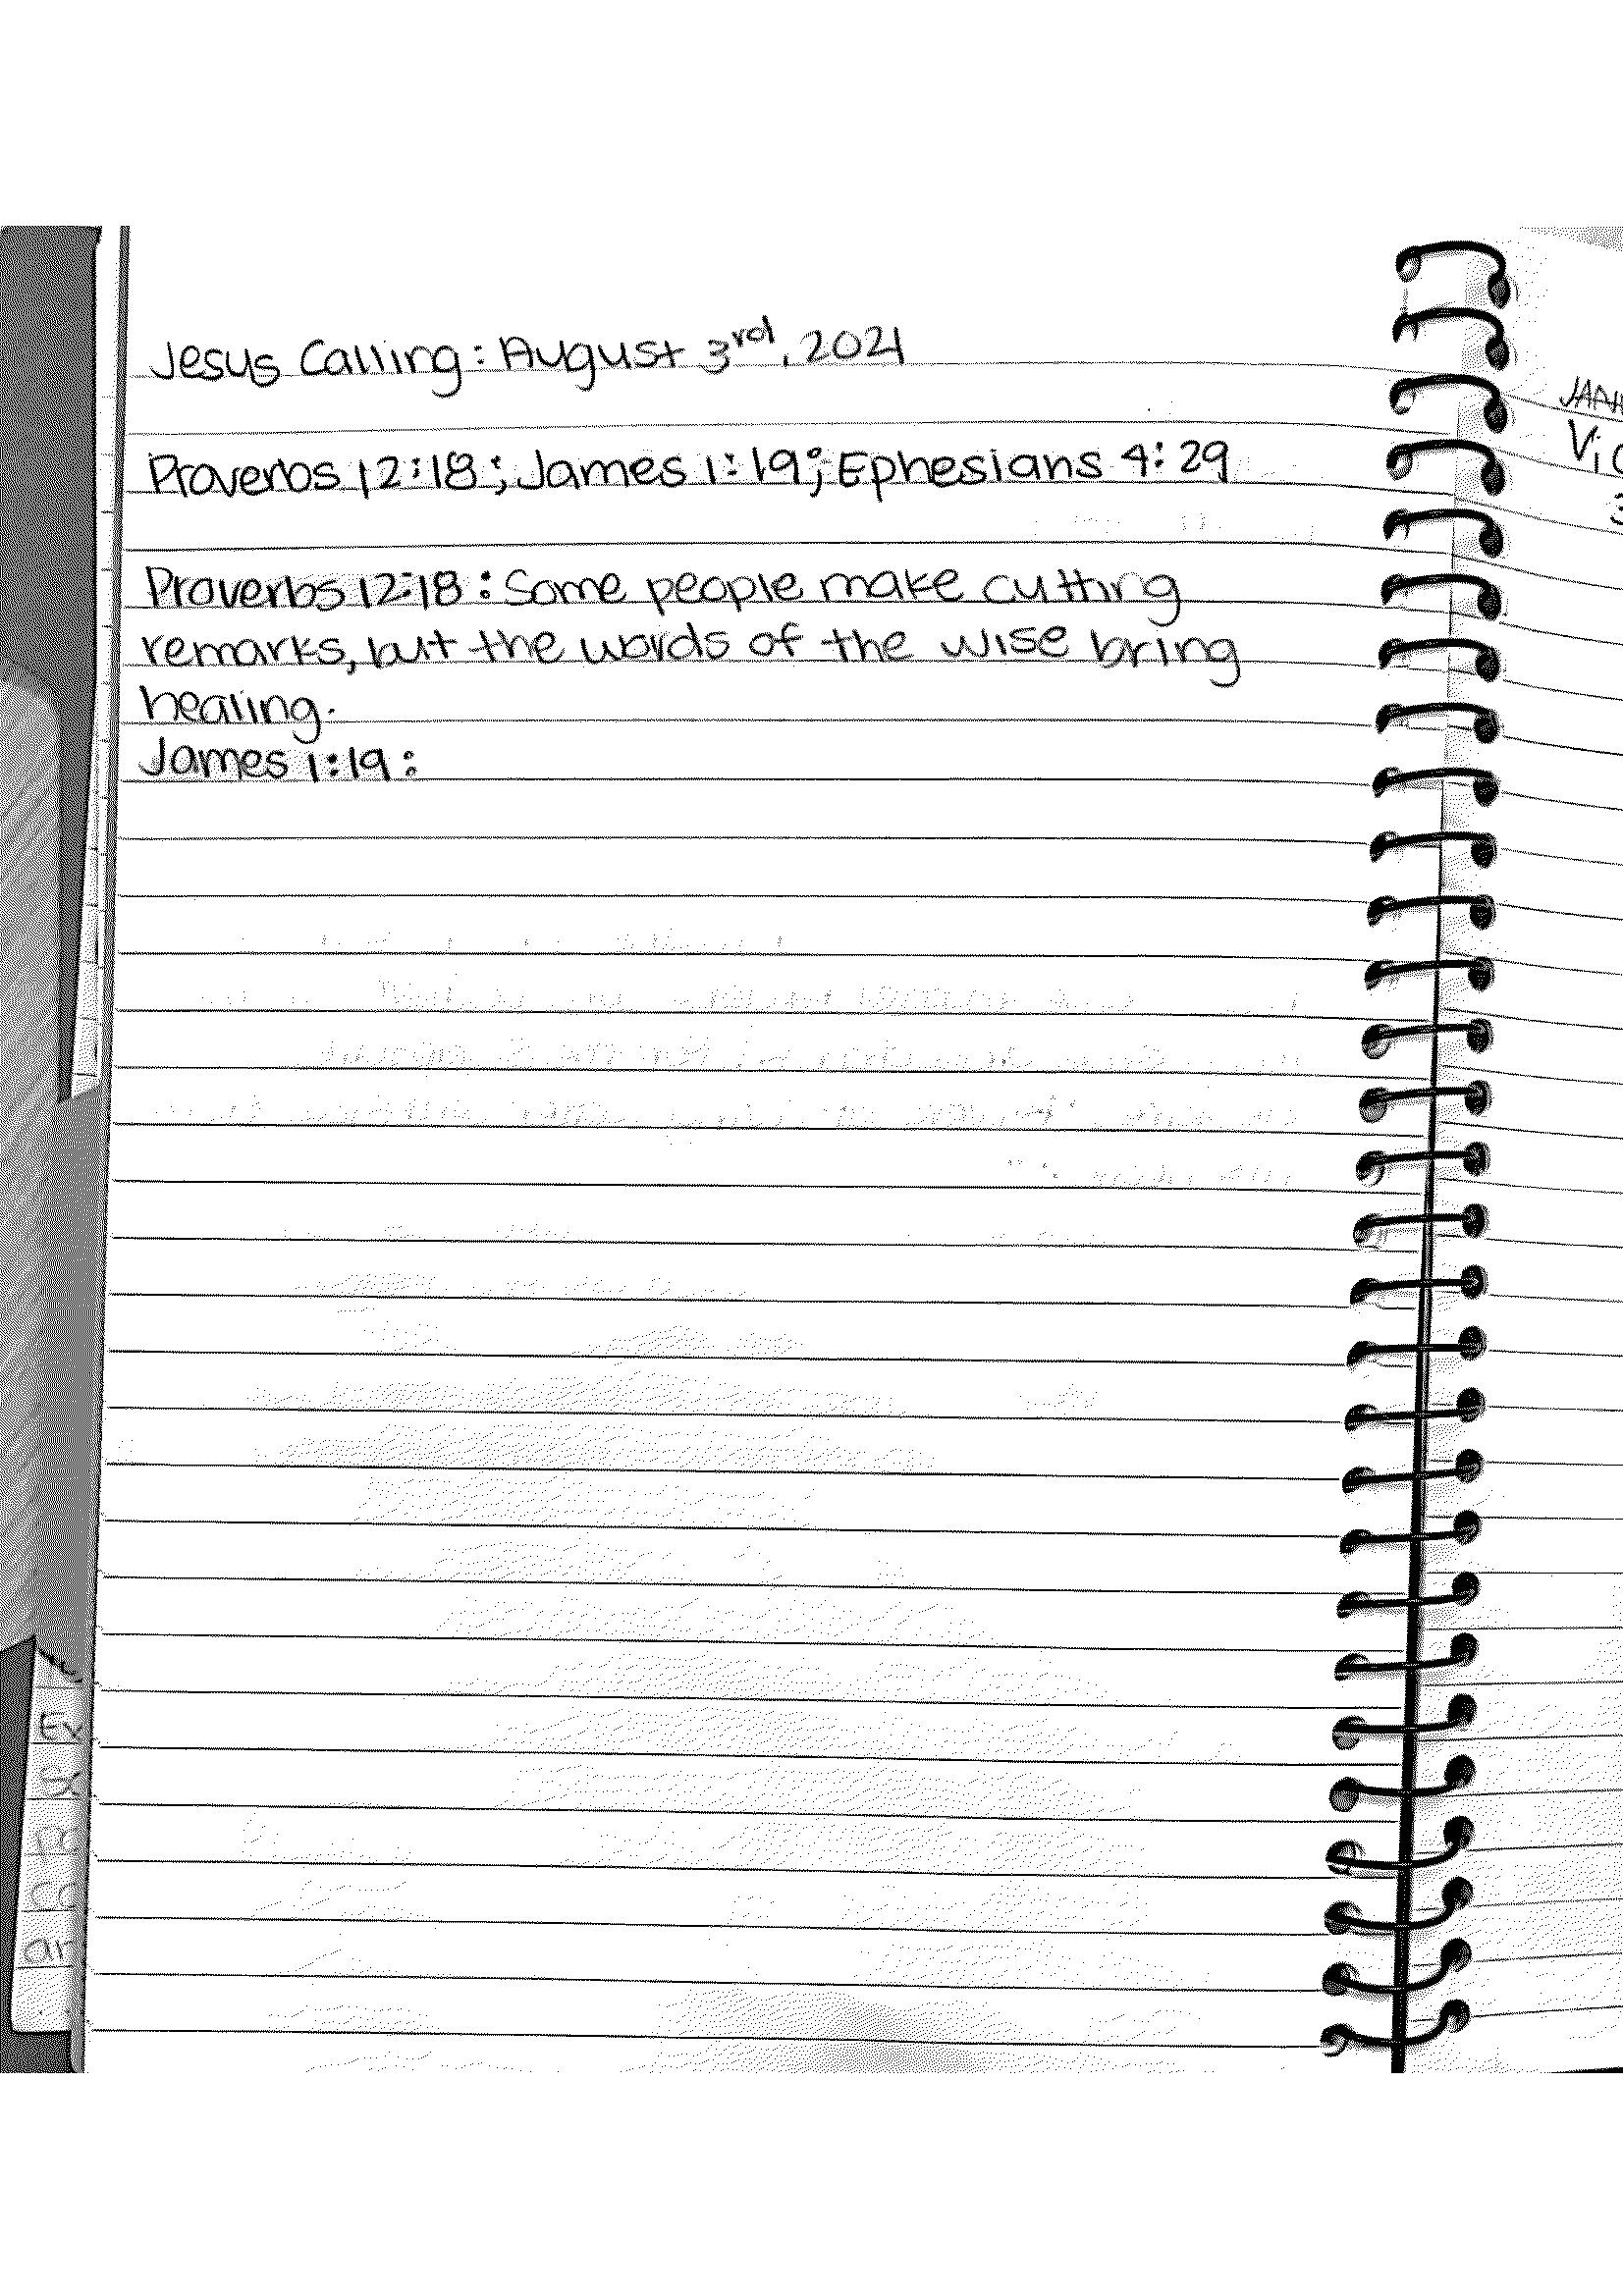 Jesus Calling: August 3rd, 2021
Proverbs 12:18; James 1:19; Ephesians 4:29
Proverbs 12:18: Some people make cutting
remarks, but the words of the wise bring
healing.
James 1:19: